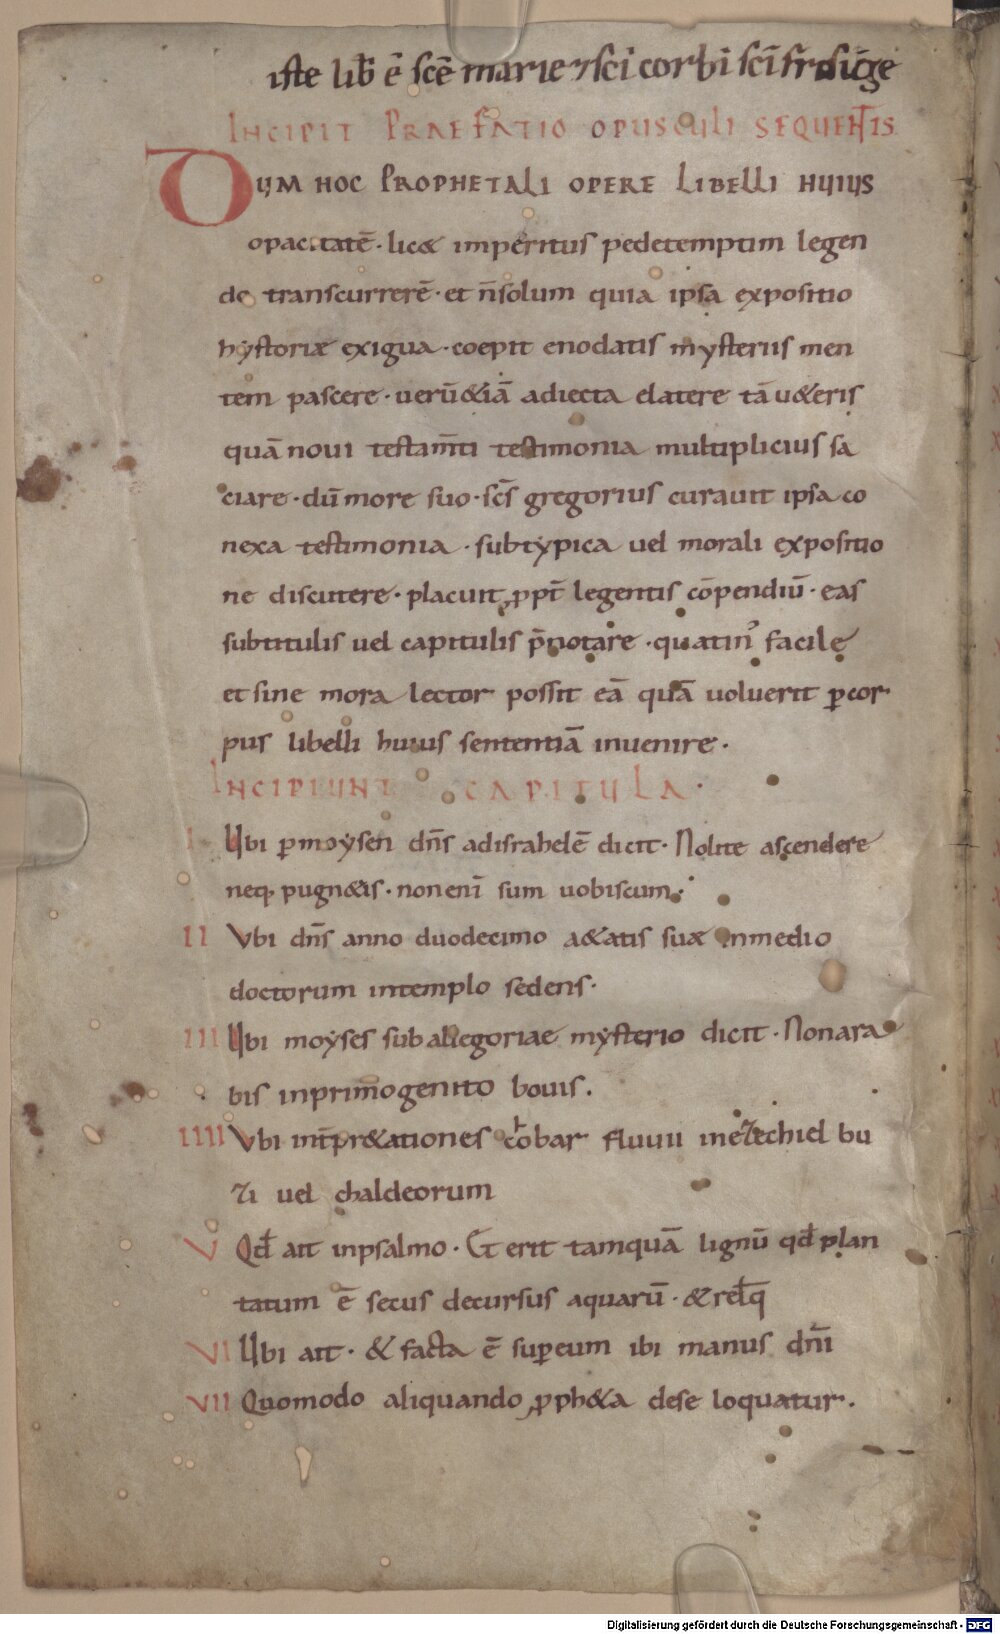 iste lib̄ ē scē marie ⁊ sc̄i corbi sc̄i
INCIPIT PRAEFATIO OPUSCULI SEQUENTIS
DUM HOC PROPHETALI OPERE LIBELLI HUIUS
opacitatē · lic& imperitus pedetemptim legen
do transcurrerē · et n̄ solum quia ipsa expositio
hẏstoriæ exigua · coepit enodatis mẏsteriis men
tem pascere · uerū &iā adiecta elatere tā u&eris
quā noui testam̄ti testimonia multiplicius sa
ciare · dū more suo · sc̄s gregorius curauit ipsa co
nexa testimonia · subtẏpica uel morali expositio
ne discutere · placuit ꝓpt̄ legentis cōpendiū · eas
subtitulis uel capitulis p̄notare · quatin᾽ facile
et sine mora lector possit eā quā uoluerit ꝑ cor
pus libelli huius sententiā inuenire ·
INCIPIUNT CAPITULA ·
I Ubi ꝑ moẏsen dn̄s ad israhelē dicit · Nolite ascendere
neq; pugn&is · non enī sum uobiscum ·
II Vbi dn̄s anno duodecimo a&atis suæ inmedio
doctorum intemplo sedens ·
III Ubi moẏses sub allegoriae mẏsterio dicit · Non ara
bis inprimogenito bouis .
IIII Vbi int̄pr&ationes cobar fluuii in ezechiel bu
zi uel chaldeorum
V Qd̄ ait inpsalmo · Et erit tamquā lignū qd̄ plan
tatum ē secus decursus aquarū · & relq̄
VI Ubi ait · & facta ē suꝑ eum ibi manus dn̄i
VII Quomodo aliquando ꝓph&a dese loquatur .
Digitalisierung gefördert durch die Deutsche Forschungsgemeinschaft - DFG